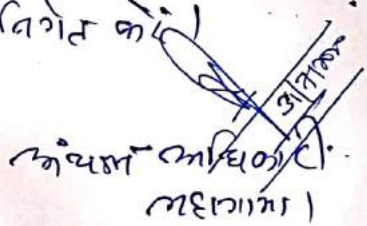 निर्गत करें।
अंचल अधिकारी
महागामा।